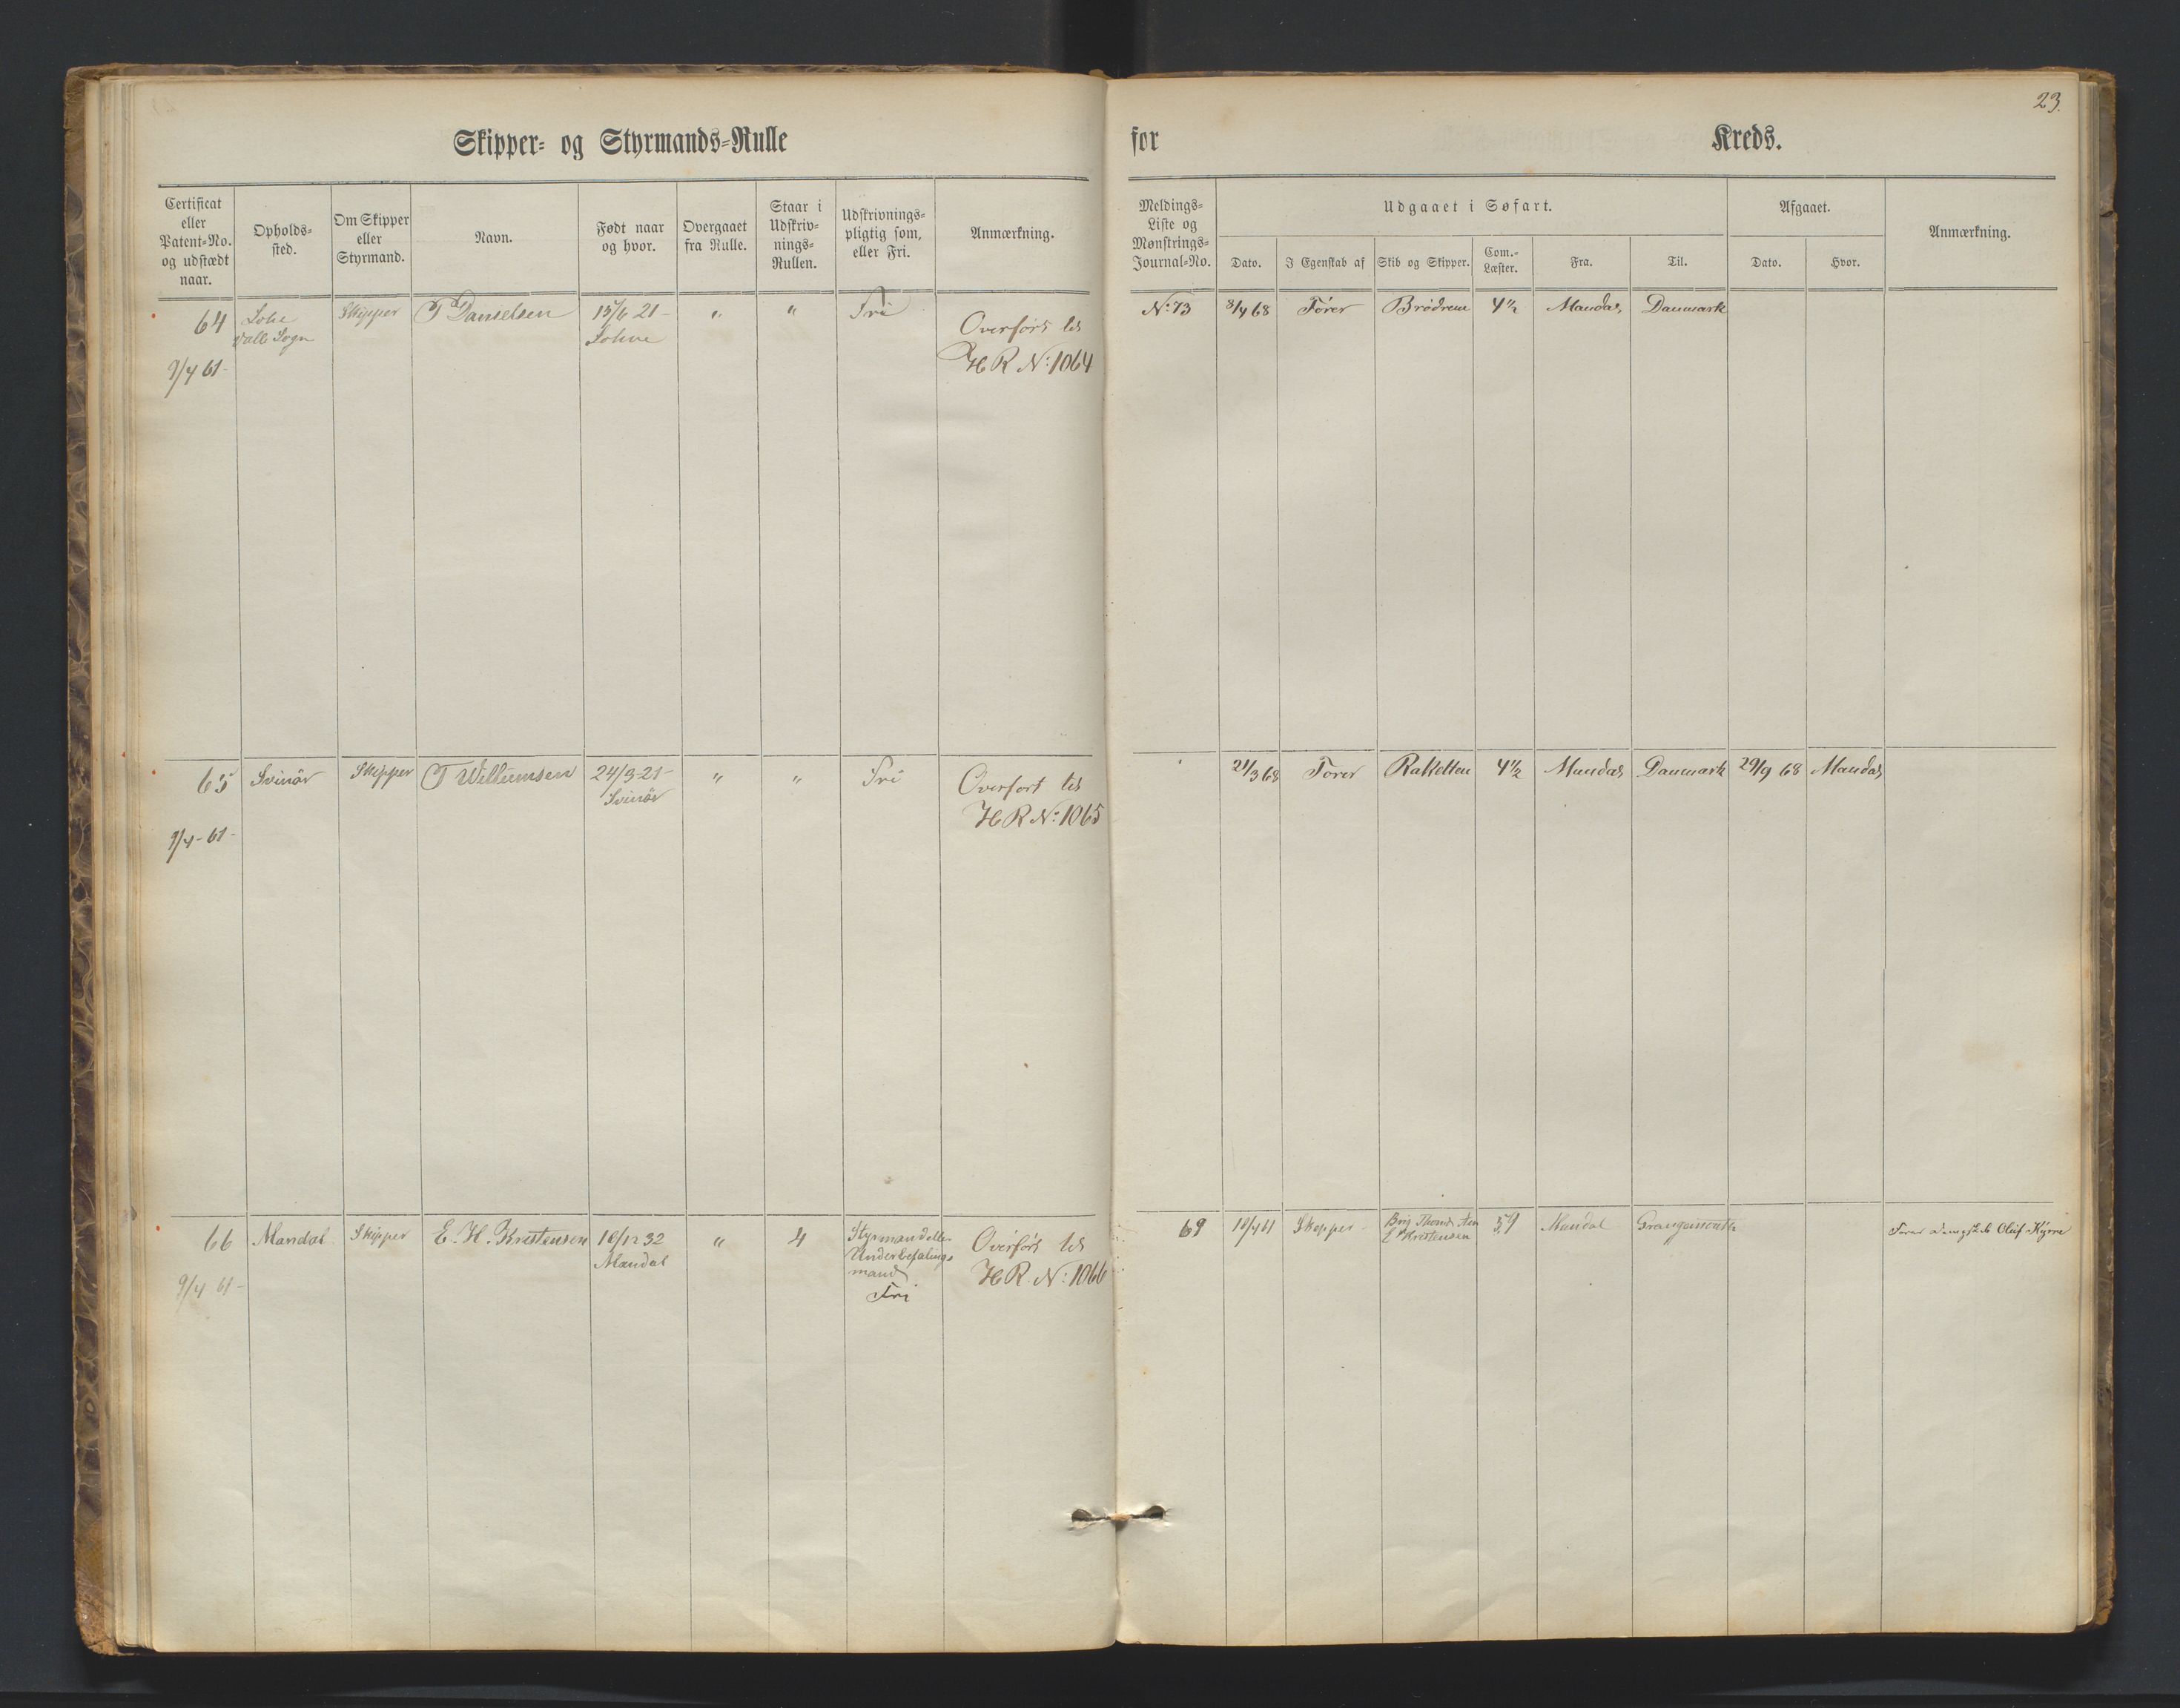 23.
Skipper- og Styrmands-Rulle for Kreds.
Certificat eller Patent-No. og udstædt naar.
Opholds-sted.
Om Skipper eller Styrmand.
Navn.
Født naar og hvor.
Overgaaet fra Rulle.
Staar i Udskriv-nings-Rullen.
Udskrivnings-pligtig som, eller Fri.
Anmærkning.
Meldings-Liste og Mønstrings-Journal-No.
Udgaaet i Søfart.
Dato.
I Egenskab af
Skib og Skipper.
Com.-Læster.
Fra.
Til.
Afgaaet.
Dato.
Hvor.
Anmærkning.
64 Skipper T Danielsen 15/6 21- " " Fri
Sogn
9/4 61-
Overført til
HR No: 1064
No: 73 8/4 68 Fører Brødrene 4 1/2 Mandal Danmark
65 Svinör Skipper T Willumsen 24/3-21- " " Fri
Svinör
9/4-61-
Overført til
HR No: 1065
21/3 68 Fører Raketten 4 1/2 Mandal Danmark 29/9 68 Mandal
66 Mandal Skipper E. H. Kristensen 10/12 32 " 4 Styrmand eller
Mandal
Underbefalings
mand
Fri
9/4 61-
Overført til
HR No: 1066
69 10/4 61 Skipper Brig
E Kristensen
Mandal Grangemouth
Fører Oluf Kyrre